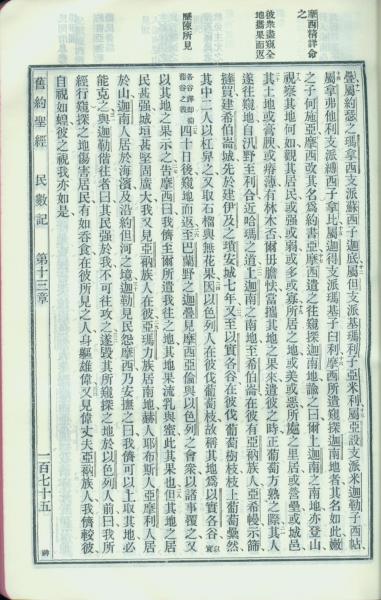 摩西詳命之
彼衆盡窺全地攜果而返
歷陳所見
疊屬約瑟之瑪拿西支派蘇西子迦底屬但支派基瑪利子亞米利屬亞設支派米迦勒子西帖
屬拿弗他利支派縛西子拿比屬迦得支派瑪基子臼利摩西所遣窺探迦南地者其名如此嫩
之子何施亞摩西改其名爲約書亞摩西遣之往窺探迦南地諭之曰爾上迦南之南地亦登山
視察其地何如觀其居民或强或弱或多或寡所居之地或美或惡所處之里居或營壘或城邑
其土地或膏腴或瘠薄有林木否爾毋膽怯當攜其地之果來遣彼之時正葡萄方熟之際其人
遂往窺地自汛野至利合近哈瑪之道上迦南之南地至希伯崙在彼有亞衲族人亞希幔示篩
撻買建希伯崙城先於建伊及之瑣安城七年又至以實各谷在彼伐葡萄樹枝枝上葡萄纍然
其中二人以杠舁之又取石榴與無花果因以色列人在彼伐葡萄枝故稱其地爲以實各谷以實
各谷譯即葡萄谷之義四十日後窺地而返至巴蘭野之迦疊見摩西亞倫與以色列之會衆以諸事覆之又
以其地之果示之告摩西曰我儕至爾所遣我往之地其地果流乳與蜜此其果也但其地之居
民甚强城垣甚堅固廣大我又見亞衲族人在彼亞瑪力族居南地赫人耶布斯人亞摩利人居
於山迦南人居於海濱及沿約但河之境迦勒見民怨摩西乃安撫之曰我儕可以上取其地必
能克之與迦勒偕往者曰其民强於我不可往攻之遂毁其所窺探之地於以色列人前曰我所
經行窺探之地傷害居民有如吞食在彼所見之人身軀雄偉又見偉丈夫亞衲族人我儕較彼
自視如蝗彼之視我亦如是
舊約聖經 民數記 第十三章 二百七十五